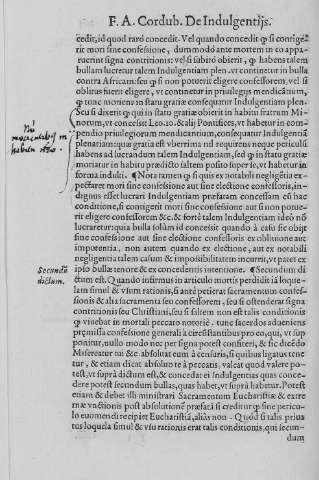 F. A. Cordub. De Indulgentijs.
cedit, id quod raró concedit. Vel quando concedit ꝙ si contigerit
rit mori sine confessione, dummodo ante mortem in eo apparuerint
ruerint signa contritionis: vel si subitò obierit, ꝙ habens talem
bullam lucretur talem Indulgentiam plen. vt continetur in bulla
contra Africam: seu ꝙ si non potuerit eligere confessorem, vel si
oblitus fuerit eligere, vt continetur in priuilegijs medicātium,
ꝙ tunc moriens in statu gratiæ consequatur Indulgentiam plen.
Secus si dixerit ꝙ qui in statu gratiæ obierit in habitu fratrum Minorum,
norum, vt concesset Leo. 10. & alij Pontifices, vt habetur in compendio
pendio priuilegiorum mendicantium, consequatur Indulgentiā
plenariam: quia gratia est vberrima nil requirens neque periculū
habens ad lucrandum talem Indulgentiam, sed ꝙ in statu gratiæ
moriatur in habitu prædicto saltem posito super se, vt habetur in
forma indulti. ¶ Nota tamen ꝙ si quis ex notabili negligētia expectaret
mori sine confessione aut sine electione confessoris, indignus
dignus esset lucrari Indulgentiam præfatam concessam cū hac
conditione, si contigerit mori sine confessione aut si non potuerit
erit eligere confessorem &c. & fortè talem Indulgentiam ideò nō
lucraretur: quia bulla solùm id concessit quando à casu sic obijt
sine confessione aut sine electione confessoris ex obliuione aut
impotentia, non autem quando ex electione, aut ex notabili
negligentia talem casum & impossibilitatem incurrit, vt patet ex
ipso bullæ tenore & ex concedentis intentione. ¶ Secundum dictum
Secundū
dictum.
ctum est. Quando infirmus in articulo mortis perdidit iā loquelam
lam simul & vsum rationis, si ante petierat sacramentum confessionis
sionis & alia sacramenta seu confessorem, seu si ostenderat signa
contritionis seu Christiani, seu si saltem non est talis conditionis
ꝙ viuebat in mortali peccato notoriè. tunc sacerdos adueniens
præmissa confessione generali à circūstantibus pro eo, qui, vt supponitur,
ponitur, nullo modo nec per signa potest confiteri, & sic dicēdo
Misereatur tui &c. absoluat eum à censuris, si quibus ligatus tenetur,
tur, & etiam dicat absoluo te à peccatis. valeat quod valere potest,
vt suprà dictum est, & concedat ei Indulgentias quas concedere
dere potest secundum bullas, quas habet, vt suprà habetur. Potest
etiam & debet illi ministrari Sacramentum Eucharistiæ & extremæ
mæ vnctionis post absolutionē præfatā si creditur ꝙ sine periculo
lo euomendi recipiet Eucharistiā, aliàs non. – Quòd si talis prius
tus loquela simul & vsu rationis erat talis conditionis, qui secundum
dum